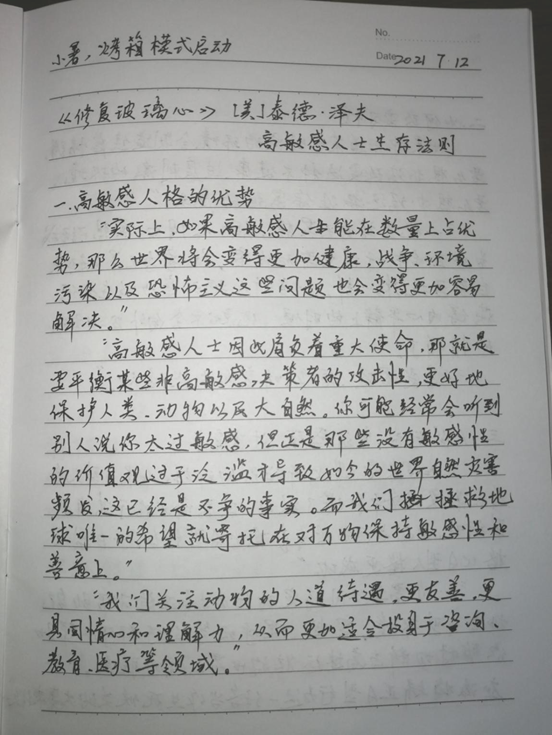 No.
小暑，烤箱模式启动
Date 2021 7.12
《修复玻璃心》[美]泰德·泽夫
高敏感人士生存法则
一.高敏感人格的优势
“实际上，如果高敏感人士能在数量上占优
势，那么世界将会变得更加健康，战争、环境
污染以及恐怖主义这些问题也会变得更加容易
解决。”
“高敏感人士因此肩负着重大使命，那就是
要平衡某些非高敏感决策者的攻击性，更好地
保护人类、动物以及大自然。你可能经常会听到
别人说你太过敏感，但正是那些没有敏感性
的价值观过于泛滥才导致如今的世界自然灾害
频发，这已经是不争的事实。而我们拯救地
球唯一的希望就寄托在对万物保持敏感性和
善意上。”
“我们关注动物的人道待遇，更友善，更
具同情心和理解力，从而更加适合投身于咨询、
教育、医疗等领域。”